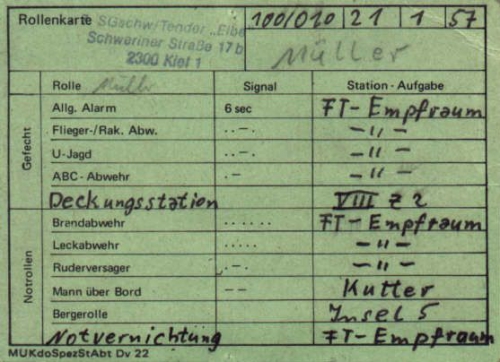 Rollenkarte SGschw/Tender „Elbe" 100/010 21 1 57
Schweriner Straße 17b
2300 Kiel 1
Müller
Rolle Müller Signal Station - Aufgabe
Gefecht
Allg. Alarm 6 sec FT- Empfraum
Flieger-/Rak. Abw. ..—. — 〃 —
U-Jagd ..—. — 〃 —
ABC-Abwehr .— — 〃 —
Deckungsstation VIII Z 2
Notrollen
Brandabwehr ...... FT- Empfraum
Leckabwehr ..... — 〃 —
Ruderversager —.— — 〃 —
Mann über Bord — — Kutter
Bergerolle Insel 5
Notvernichtung FT- Empfraum
MUKdoSpezStAbt Dv 22